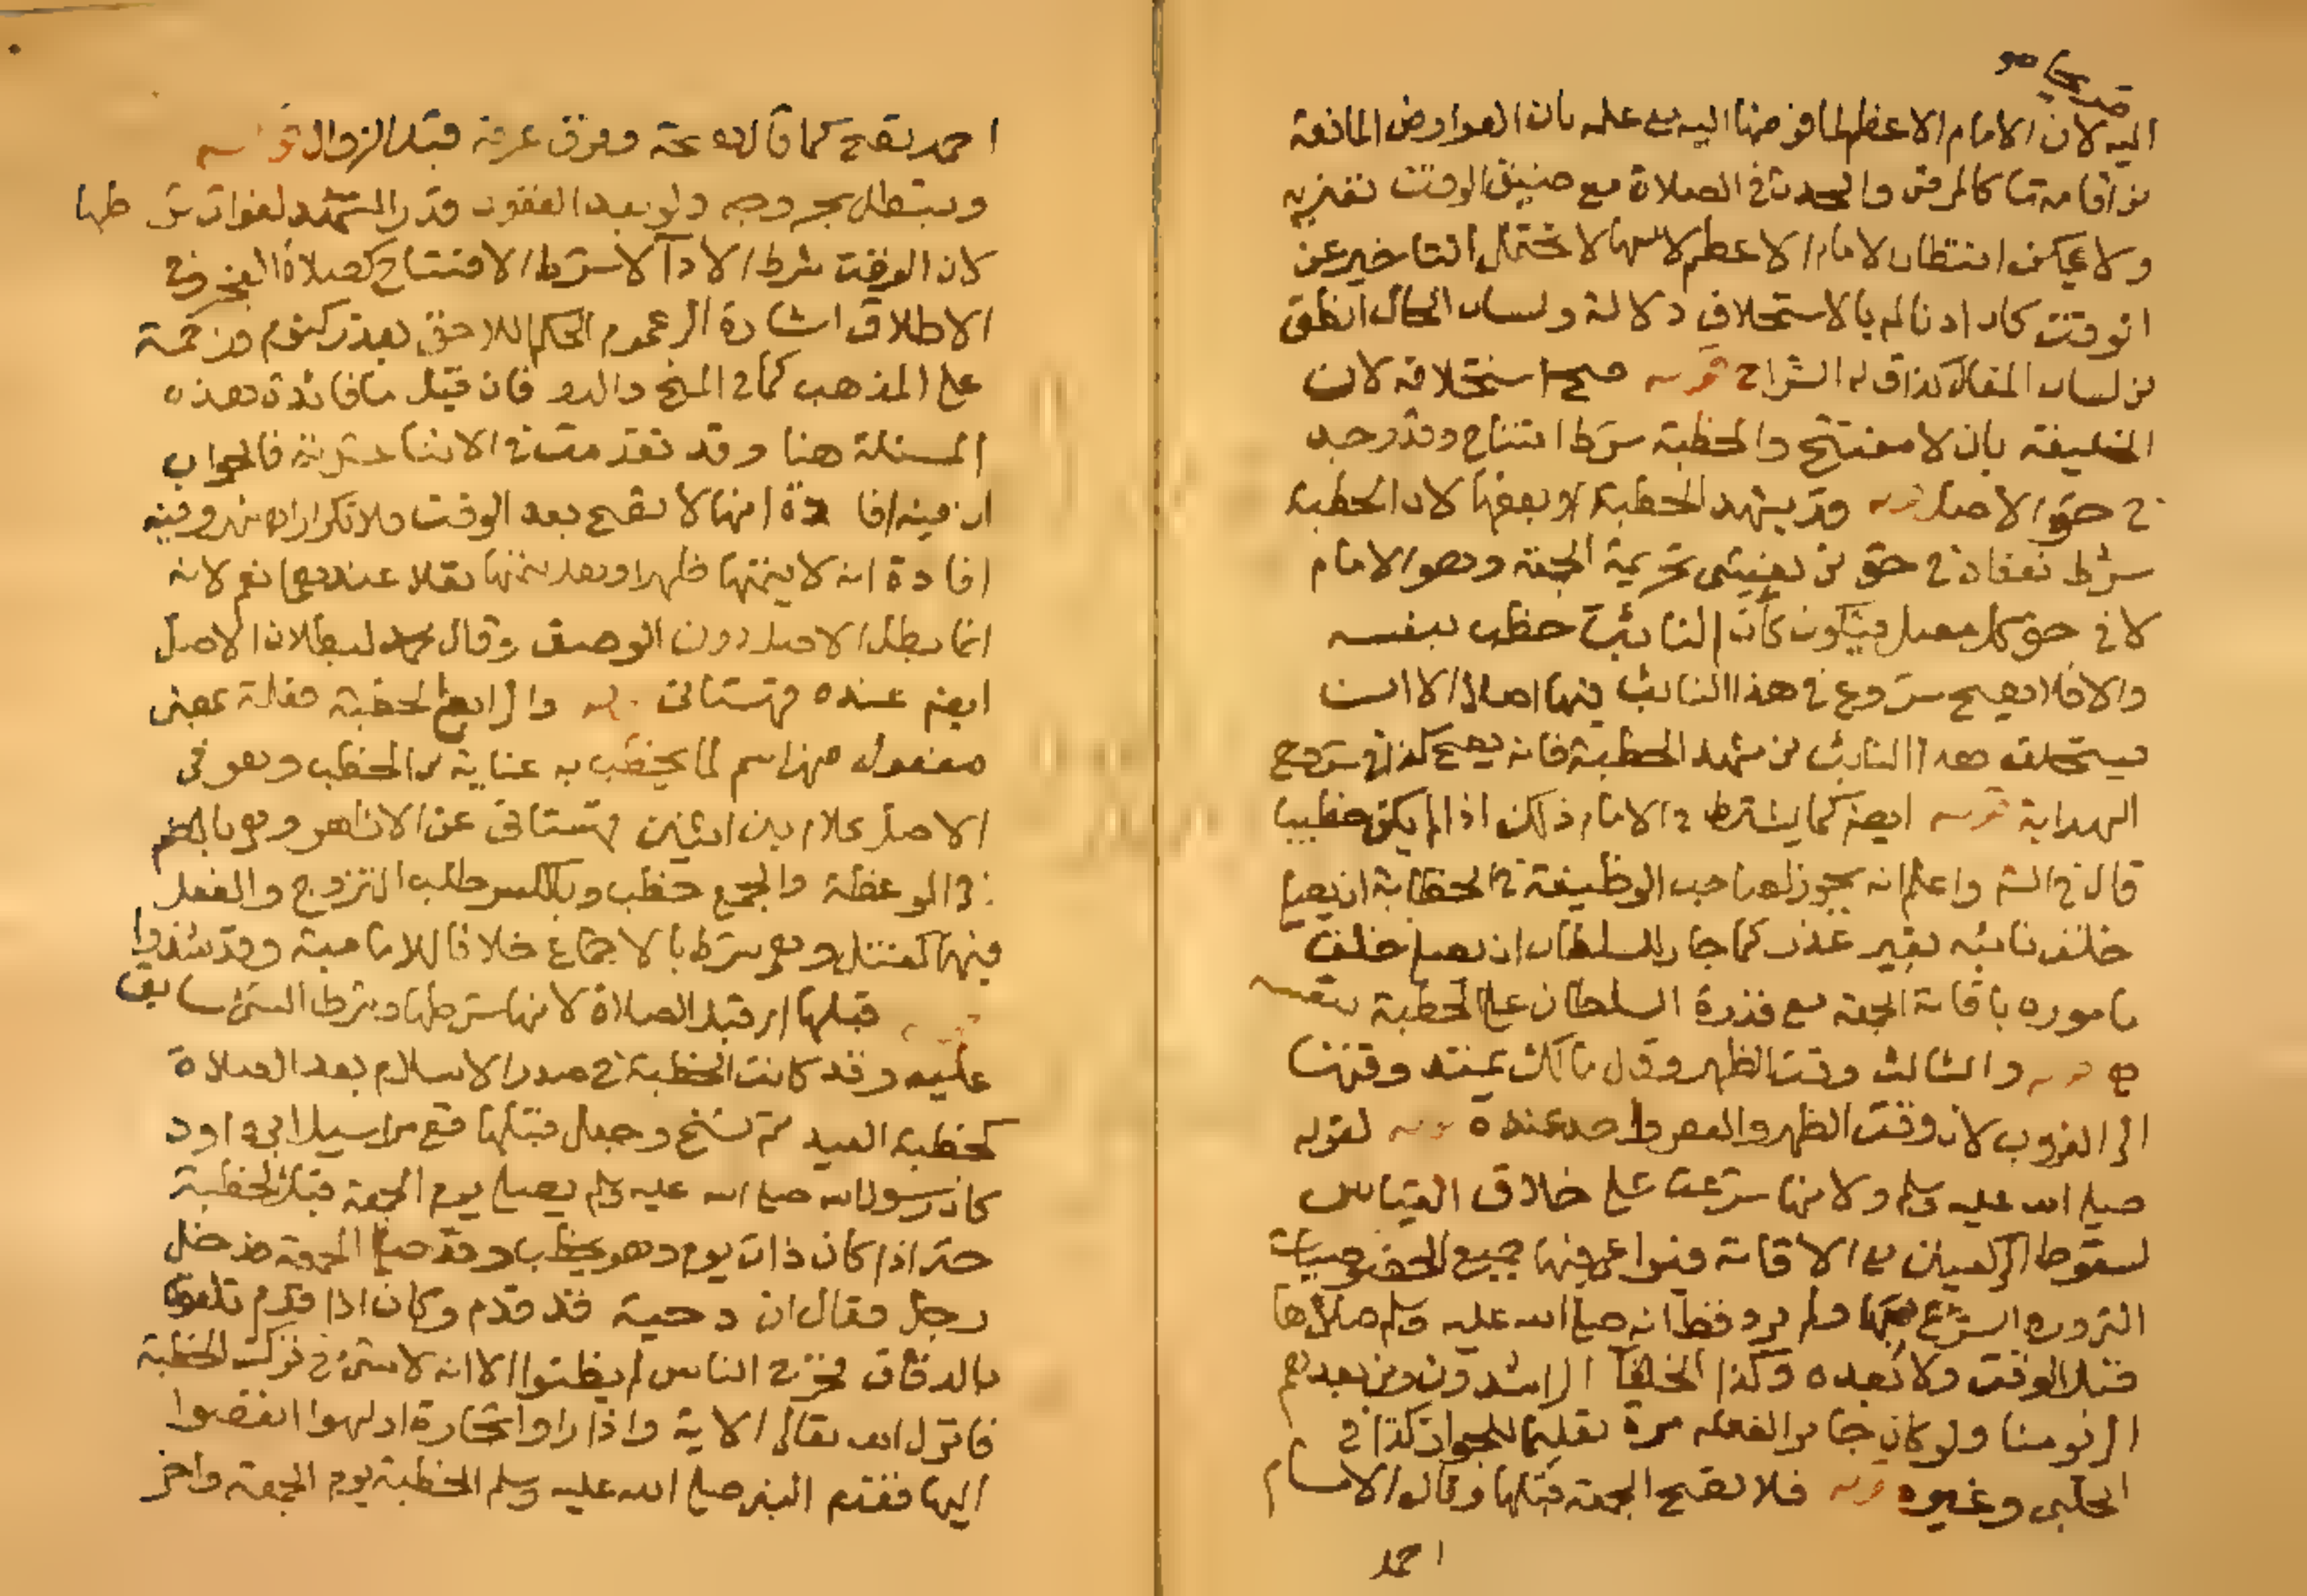 اليه لان الامام الاعظم لما فوضها اليه مع علمه بان العوارض المانعة
من اقامتها كالمرض والحدث في الصلاة مع ضيق الوقت تعتريه
ولا يمكن انتظار الامام الاعظم لانها لا تحتمل التاخير عن
الوقت كان اذنا له بالاستخلاف دلالة ولسان الحال انطق
من لسان المقال كذا قاله الشراح قوله صح استخلافه لان
الخليفة بان لا مفتتح والخطبة شرط افتتاح وقد وجد
في حق الاصل قوله قد يشهد الخطبة او بعضها لان الخطبة
شرط انعقاد في حق من ينشئ تحريمة الجمعة وهو الامام
لا في حق كل مصل فيكون كأن النائب خطب بنفسه
والا فلا يصح شروع في هذا النائب فيها اصلا الا ان
يستخلف هذا النائب من شهد الخطبة فانه يصح كذا في شرح
الهداية قوله ايضا كما يشترط في الامام ذلك اذا لم يكن خطيبا
قال في الشر واعلم انه يجوز لصاحب الوظيفة في الخطابة ان يصلي
خلف نائبه بغير عذر كما جاز للسلطان ان يصلي خلف
ماموره باقامة الجمعة مع قدرة السلطان على الخطبة بنفسه
قوله والثالث وقت الظهر وقال مالك يمتد وقتها
الى الغروب لان وقت الظهر والعصر واحد عنده قوله لقوله
صلى الله عليه وسلم ولانها شرعت على خلاف القياس
لسقوط الركعتين مع الاقامة فيراعى فيها جميع الخصوصيات
التي ورد الشرع بها ولم يرد قط انه صلى الله عليه وسلم صلاها
قبل الوقت ولا بعده وكذا الخلفا الراشدون ومن بعدهم
الى يومنا ولو كان جائزا لفعله مرة تعليما للجواز كذا في
الحلبي وغيره قوله فلا تصح الجمعة قبلها وقال الامام
احمد
احمد تصح كما قاله وفوق عرفة قبل الزوال قوله
وتبطل بخروجه ولو بعد القعود قدر التشهد لفوات شرطها
لان الوقت شرط الادآ لا شرط الافتتاح كصلاة الفجر وفي
الاطلاق اشارة الى عموم الحكم اللاحق بعذر كنوم وزحمة
على المذهب كما في المنح والدر فان قيل ما فائدة هذه
المسئلة هنا وقد تقدمت في الاثنا عشرية فالجواب
ان فيه افادة انها لا تصح بعد الوقت فلا تكرار وفيه
افادة انه لا يتمها ظهرا وبعد يتمها نفلا عندهما نعم لانه
انما بطل الاصل دون الوصف وقال محمد لبطلان الاصل
ايضا عنده قهستاني قوله والرابع الخطبة فعلة بمعنى
مفعولة فهي اسم لما يخطب به عناية من الخطب وهو في
الاصل كلام بين اثنين قهستاني عن الازاهر وهو بالضم
في الموعظة والجمع خطب وبالكسر طلب التزوج والفعل
فيهما كقتل وهو شرط بالاجماع خلافا للامامية وقد شذوا
قوله قبلها اي قبل الصلاة لانها شرطها وشرط الشئ سابق
عليه وقد كانت الخطبة في صدر الاسلام بعد الصلاة
كخطبة العيد ثم نسخ وجعل قبلها فع مراسيل ابي داود
كان رسول الله صلى الله عليه وسلم يصلي يوم الجمعة قبل الخطبة
حتى اذا كان ذات يوم وهو يخطب وقد صلى الجمعة فدخل
رجل فقال ان دحية قد قدم وكان اذا قدم تلقوه
بالدفاف فخرج الناس لم يظنوا الا انه لا شئ في ترك الخطبة
فانزل الله تعالى الاية واذا راوا تجارة او لهوا انفضوا
اليها فقدم النبي صلى الله عليه وسلم الخطبة يوم الجمعة واخر